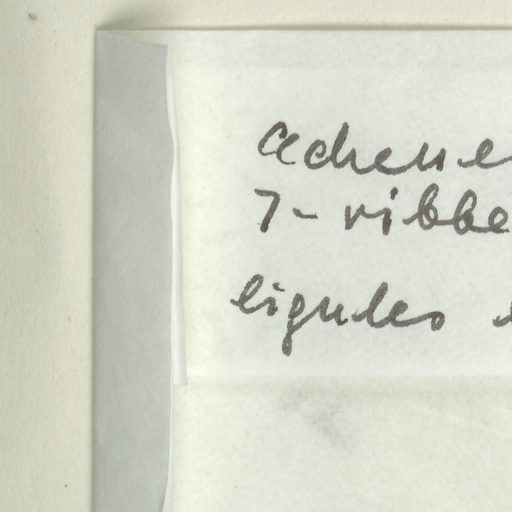 achene
7-ribbe
ligules